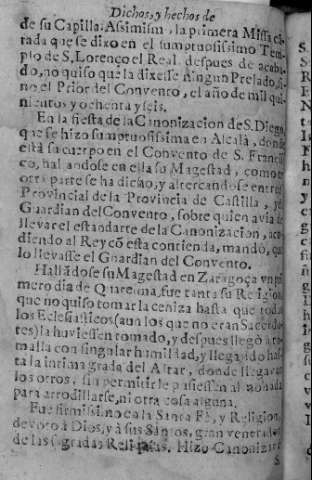 Dichos, y hechos de
de su Capilla. Assimismo, la primera Missa cã
tada que se dixo en el sumptuosissimo Tem
plo de S. Lorenço el Real, despues de acaba
do, no quiso que la dixesse ningun Prelado, si
no el Prior del Convento, el año de mil qui
nientos y ochenta y seis.
En la fiesta de la Canonizacion de S. Diego,
que se hizo sumptuosissima en Alcalà, donde
està su cuerpo en el Convento de S. Francis
co, hallandose en ella su Magestad, como en
otra parte se ha dicho, y altercandose entre el
Provincial de la Provincia de Castilla, y el
Guardian del Convento, sobre quien avia de
llevar el estandarte de la Canonizacion, acu
diendo al Rey cõ esta contienda, mandò, que
lo llevasse el Guardian del Convento.
Hallãdose su Magestad en Zaragoça vn pri
mero dia de Quaresma, fue tanta su Religion,
que no quiso tomar la ceniza hasta que todos
los Eclesiasticos (aun los que no eran Sacerdo
tes) la huviessen tomado, y despues llegò à to
malla con singular humildad, y llegando has
ta la intima grada del Altar, donde llegavan
los otros, sin permitir le pusiessen almohada
para arrodillarse, ni otra cosa alguna.
Fue firmissimo en la Santa Fè, y Religion,
devoto à Dios, y à sus Santos, gran venerador
de las sagradas Reliquias. Hizo Canonizar